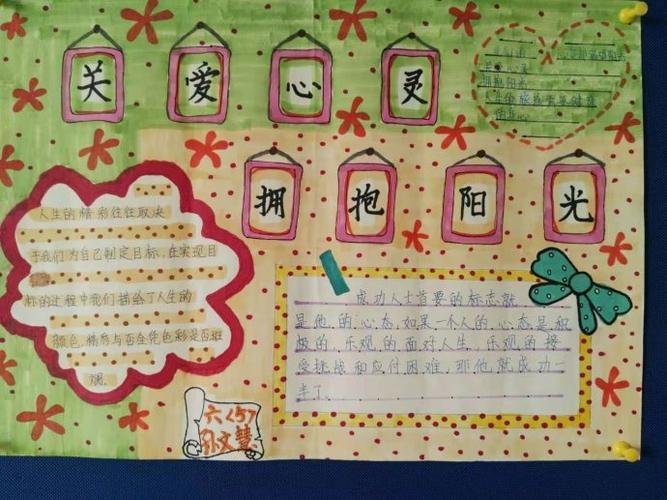 关爱心灵
拥抱阳光
关爱心灵
拥抱阳光
人生的精彩往往取决
于我们为自己制定目标,在实现目
标的过程中我们描绘了人生的
颜色,精彩与否在凭色彩是否斑
斓.
成功人士首要的标志就
是他的心态.如果一个人的心态是积
极的,乐观的面对人生,乐观的接
受挑战和应付困难,那他就成功一
半了.
六〈5〉
孙文慧